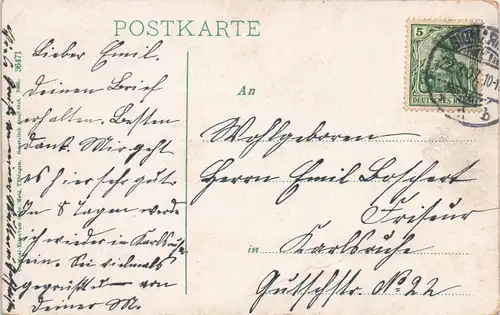 POSTKARTE
Lieber Emil.
Deinen Brief
erhalten. Besten
Dank. Mir geht
es hier sehr gut.
In 8 Tagen werde
ich wieder in Karlsruhe
sein. Sei vielmals
gegrüsst von
Deiner M.
An
Wohlgeboren
Herrn Emil Boschert
Friseur
in Karlsruhe
Gutschstr. No 22
5
DEUTSCHES REICH
36471